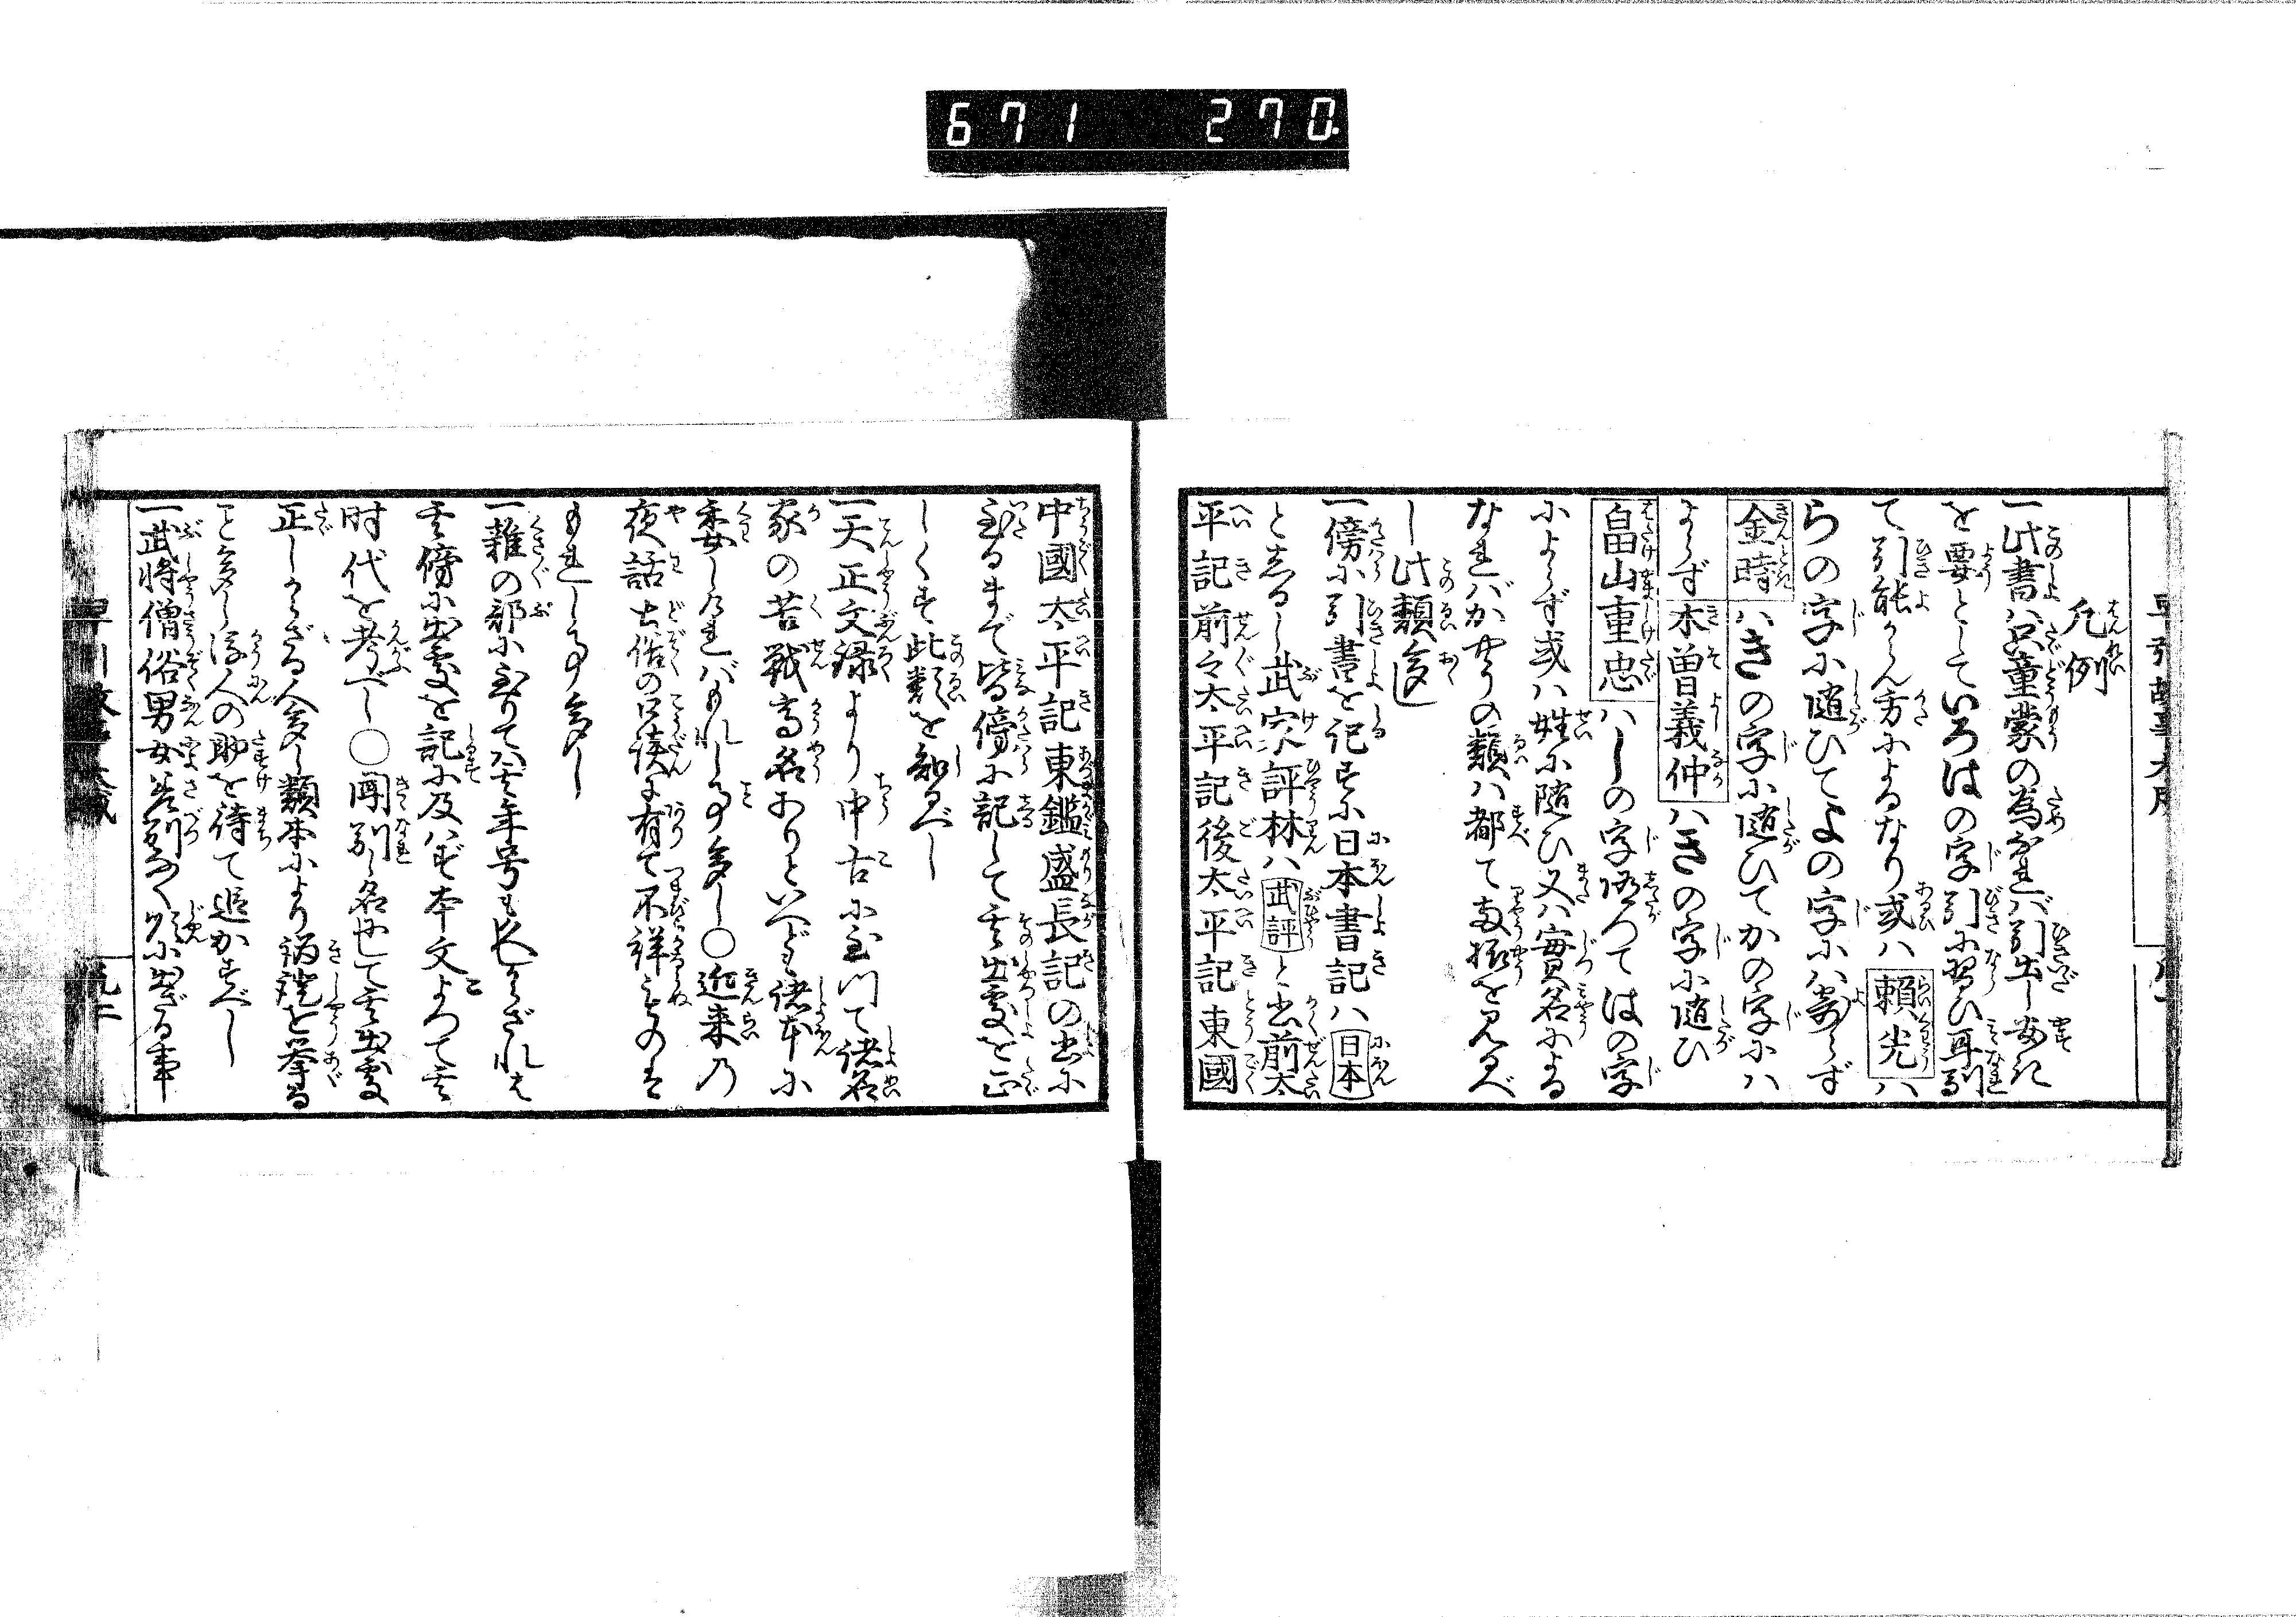 671 270
凡例
一此書ハ只童蒙の為なれバ引出し安き
を要としていろはの字引に習ひ耳馴
て引能からん方によるなり或ハ頼光ハ
らの字に随ひてよの字にハ寄らず
金時ハきの字に随ひてかの字にハ
よらず木曽義仲ハきの字に随ひ
畠山重忠ハしの字随つてはの字
によらず或ハ姓に随ひ又ハ実名による
なれバかやうの類ハ都て両様を見るべ
し此類多し
一傍に引書を記すに日本書記ハ日本
としるし武家評林ハ武評と出前太
平記前々太平記後太平記東國
中國太平記東鑑盛長記の書に
至るまで皆傍に記して其出處を正
しくす此類を知るべし
一天正文禄より中古に至つて諸名
家の苦戦高名ありといへども諸本に
委しけれバもれし事多し〇近来の
夜話土俗の口談は有て不祥ものは
もれし事多し
一雑の部に至りてハ其年号も長からざれは
其傍に出處を記に及ハず本文よつて其
时代を考べし〇聞馴し名にして其出處
正しからざる人多し類本により偽説を挙る
こと多し後人の助を待て追加すべし
一武将僧俗男女差別なく順に出ざる事